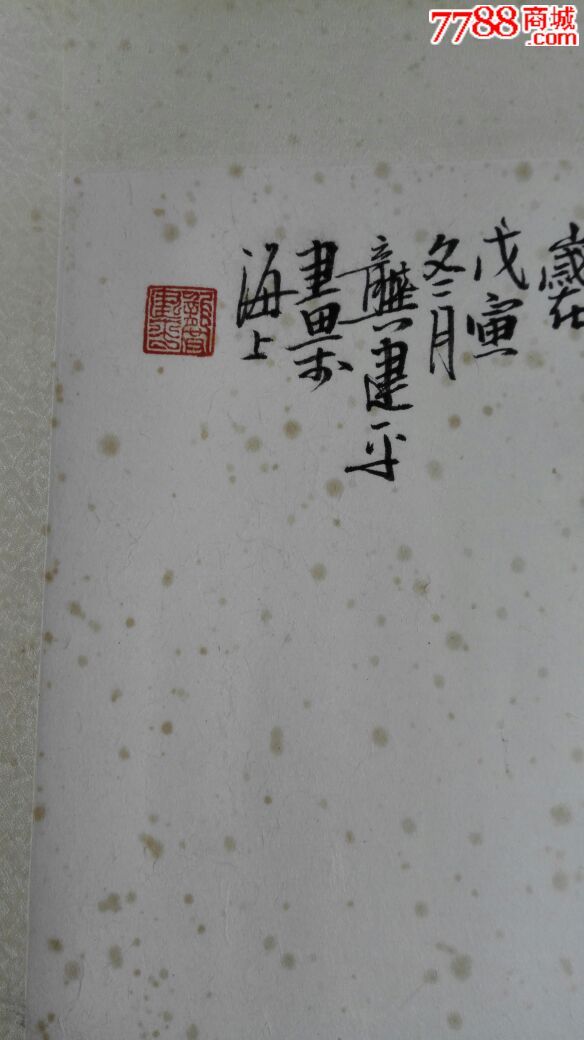 7788商城
.com
歲在
戊寅
冬月
龔建平
畫於
海上